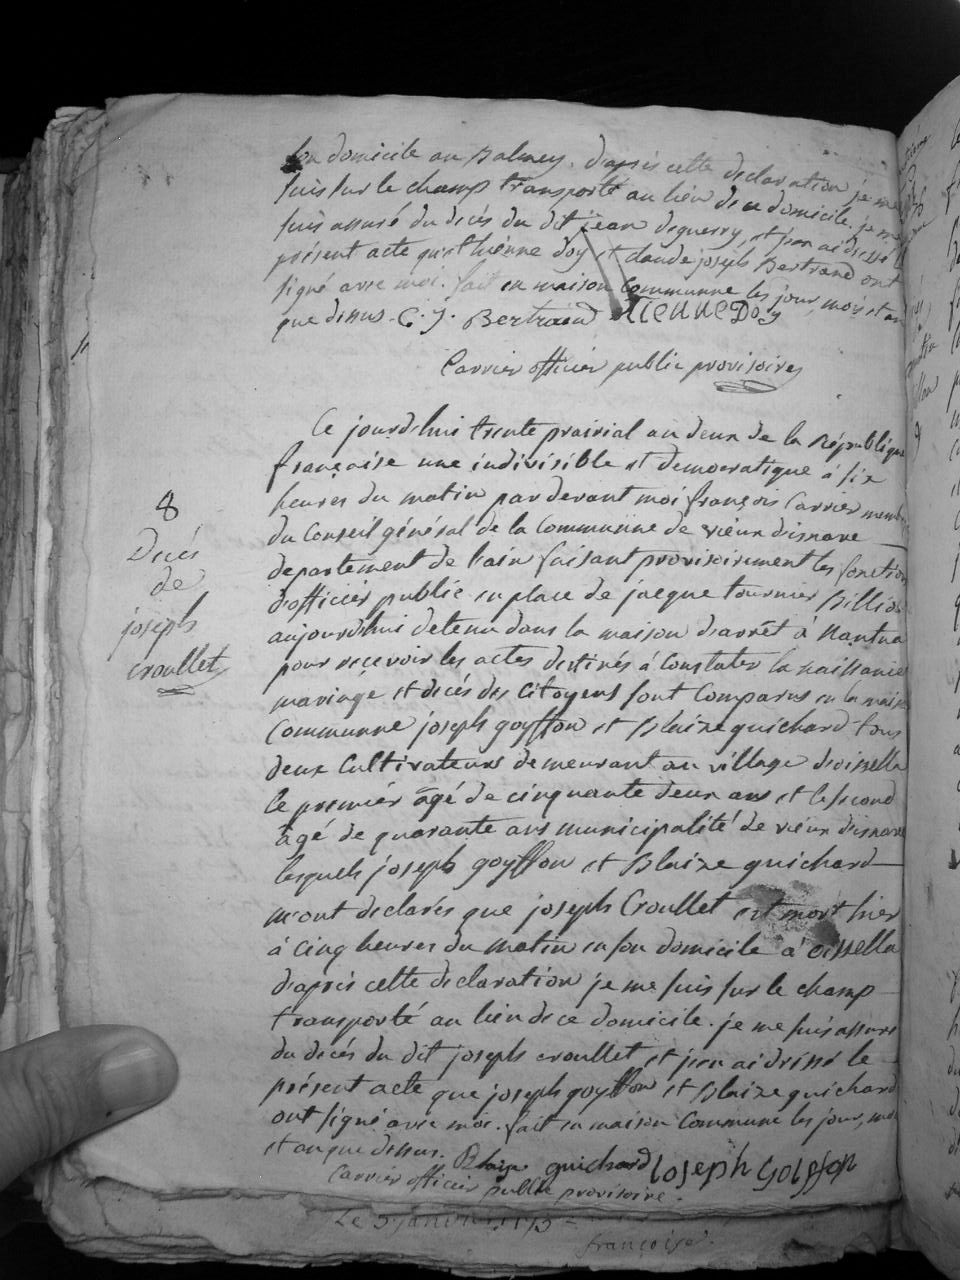 son domicile au Balmey. d'après cette declaration je me
suis sur le champ transporté au lieu de ce domicile. je me
suis assuré du decès du dit jean deguerry et j'en ai dressé le
présent acte qu'ethienne Doy et claude joseph Bertrand ont
signé avec moi. fait en maison Communne les jour, mois et an
que dessus. C. J. Bertrand ETIENNE DOy
Carrier officier public provisoire
Ce jourd'hui trente prairial an deux de la République
française une indivisible et democratique à six
heures du matin par devant moi françois Carrier membre
du Conseil général de la Communne de vieux disnave
departement de l'ain faisant provisoirement les fonction
d'officier public en place de jacque tournier Billio
aujourd'hui detenu dans la maison d'arrêt à Nantua
pour recevoir les actes destinés à Constater la naissance
mariage et decés des Citoyens sont Comparus en la maison
Communne joseph goyffon et Blaize guichard tous
deux Cultivateurs demeurant au village d'oissella
le premier âgé de cinquante deux ans et le second
âgé de quarante ans municipalité de vieux disnave
lesquels joseph goyffon et Blaize guichard
m'ont declarés que joseph Croullet est mort hier
à cinq heures du matin en son domicile à oissella
d'après cette declaration je me suis sur le champ
transporté au lieu de ce domicile. je me suis assuré
du decés du dit joseph croullet et j'en ai dréssé le
présent acte que joseph goyffon et Blaize guichard
ont signé avec moi. fait en maison Commune les jour, moi
et an que dessus. Blaize guichard Joseph GOIFFON
Carrier officier public provisoire.
8
Decés
de
joseph
croullet
Le 5 janvier
françoise.